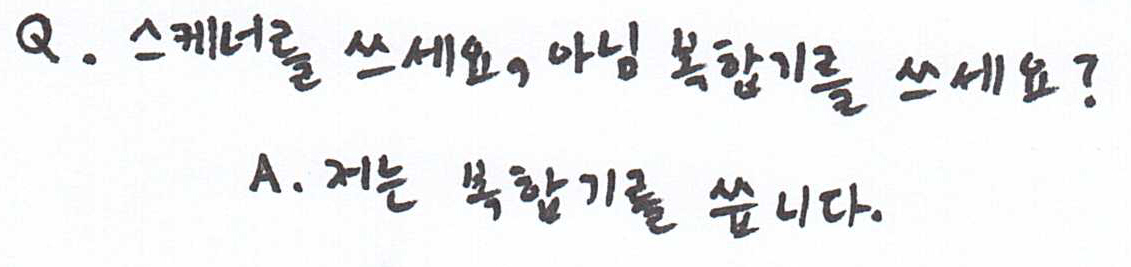 Q. 스케너를 쓰세요, 아님 복합기를 쓰세요?
A. 저는 복합기를 씁니다.